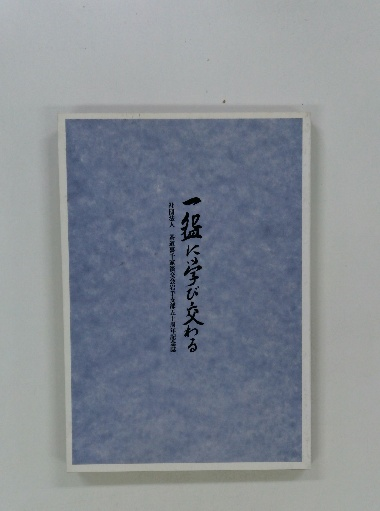 一盌に学び交わる
社団法人 茶道裏千家淡交会岩手支部五十周年記念誌